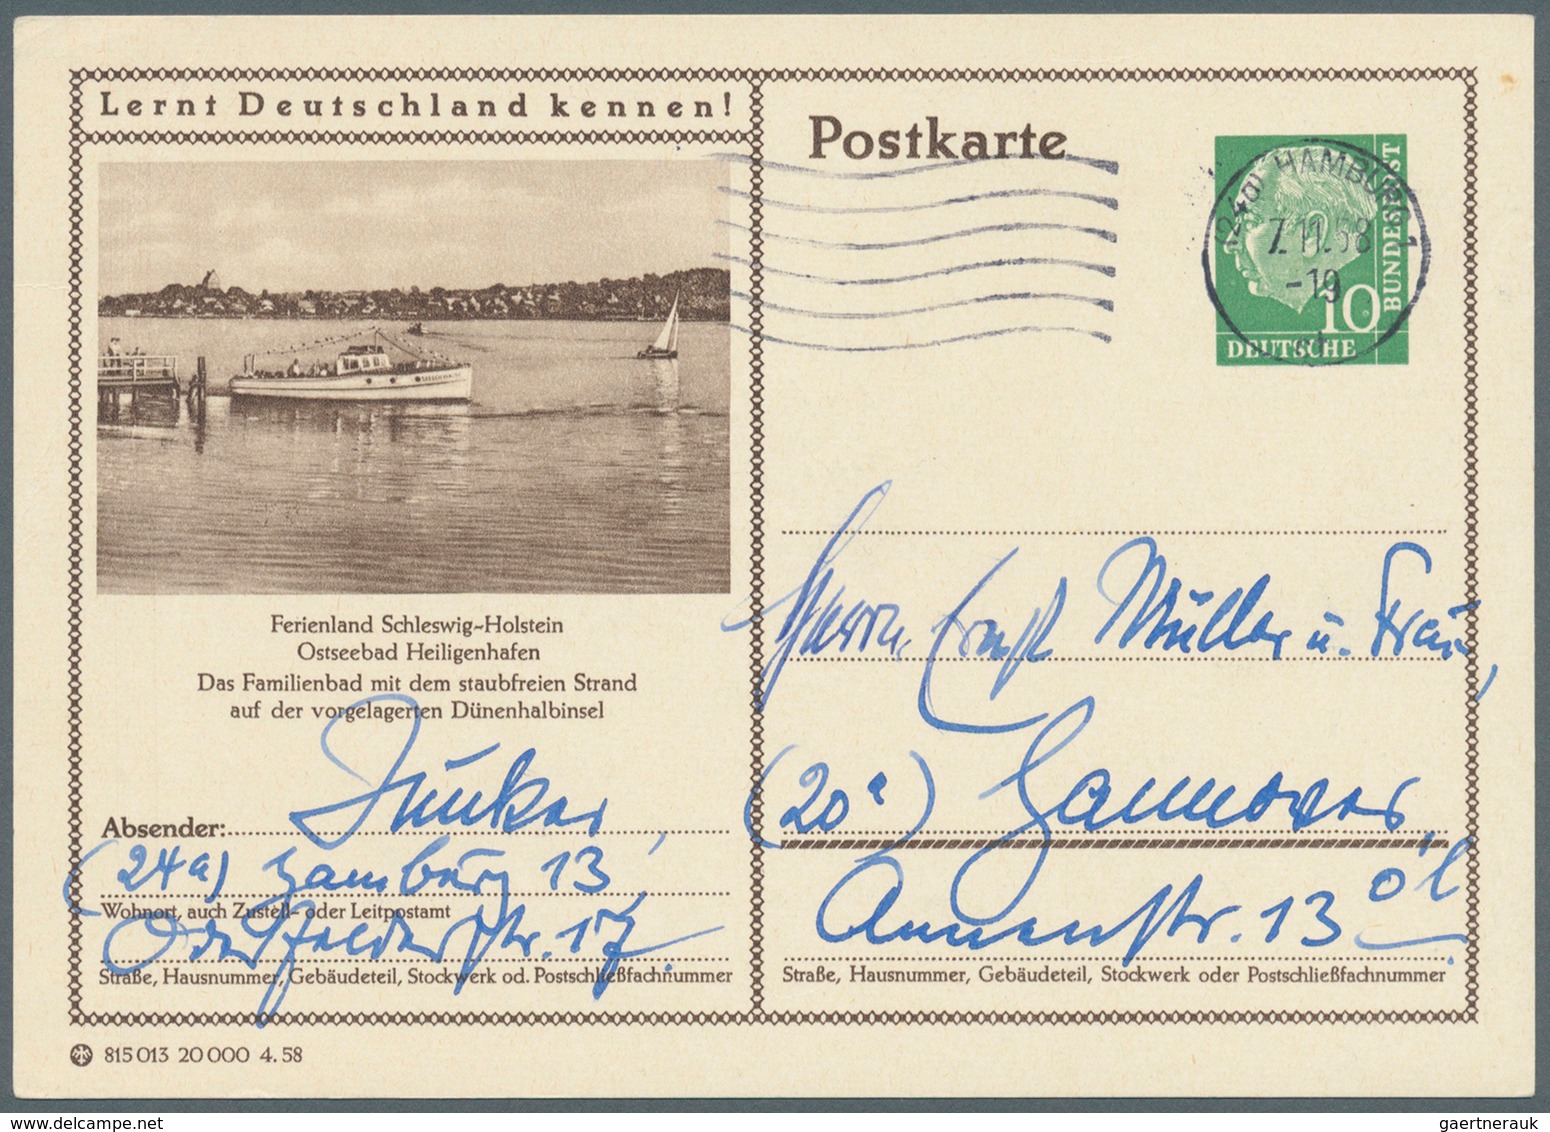 Lernt Deutschland kennen!
Ferienland Schleswig-Holstein
Ostseebad Heiligenhafen
Das Familienbad mit dem staubfreien Strand
auf der vorgelagerten Dünenhalbinsel
Junker
Absender:
(24a) Hamburg 13,
Wohnort, auch Zustell- oder Leitpostamt
Oderfelderstr. 17.
Straße, Hausnummer, Gebäudeteil, Stockwerk od. Postschließfachnummer
815 013 20 000 4.58
Postkarte
(24a) HAMBURG 1
7.11.58
-19
10
DEUTSCHE
BUNDESPOST
Herrn Ernst Müller u. Frau,
(20a) Hannover,
Annenstr. 13
Straße, Hausnummer, Gebäudeteil, Stockwerk oder Postschließfachnummer
gaertnerauk